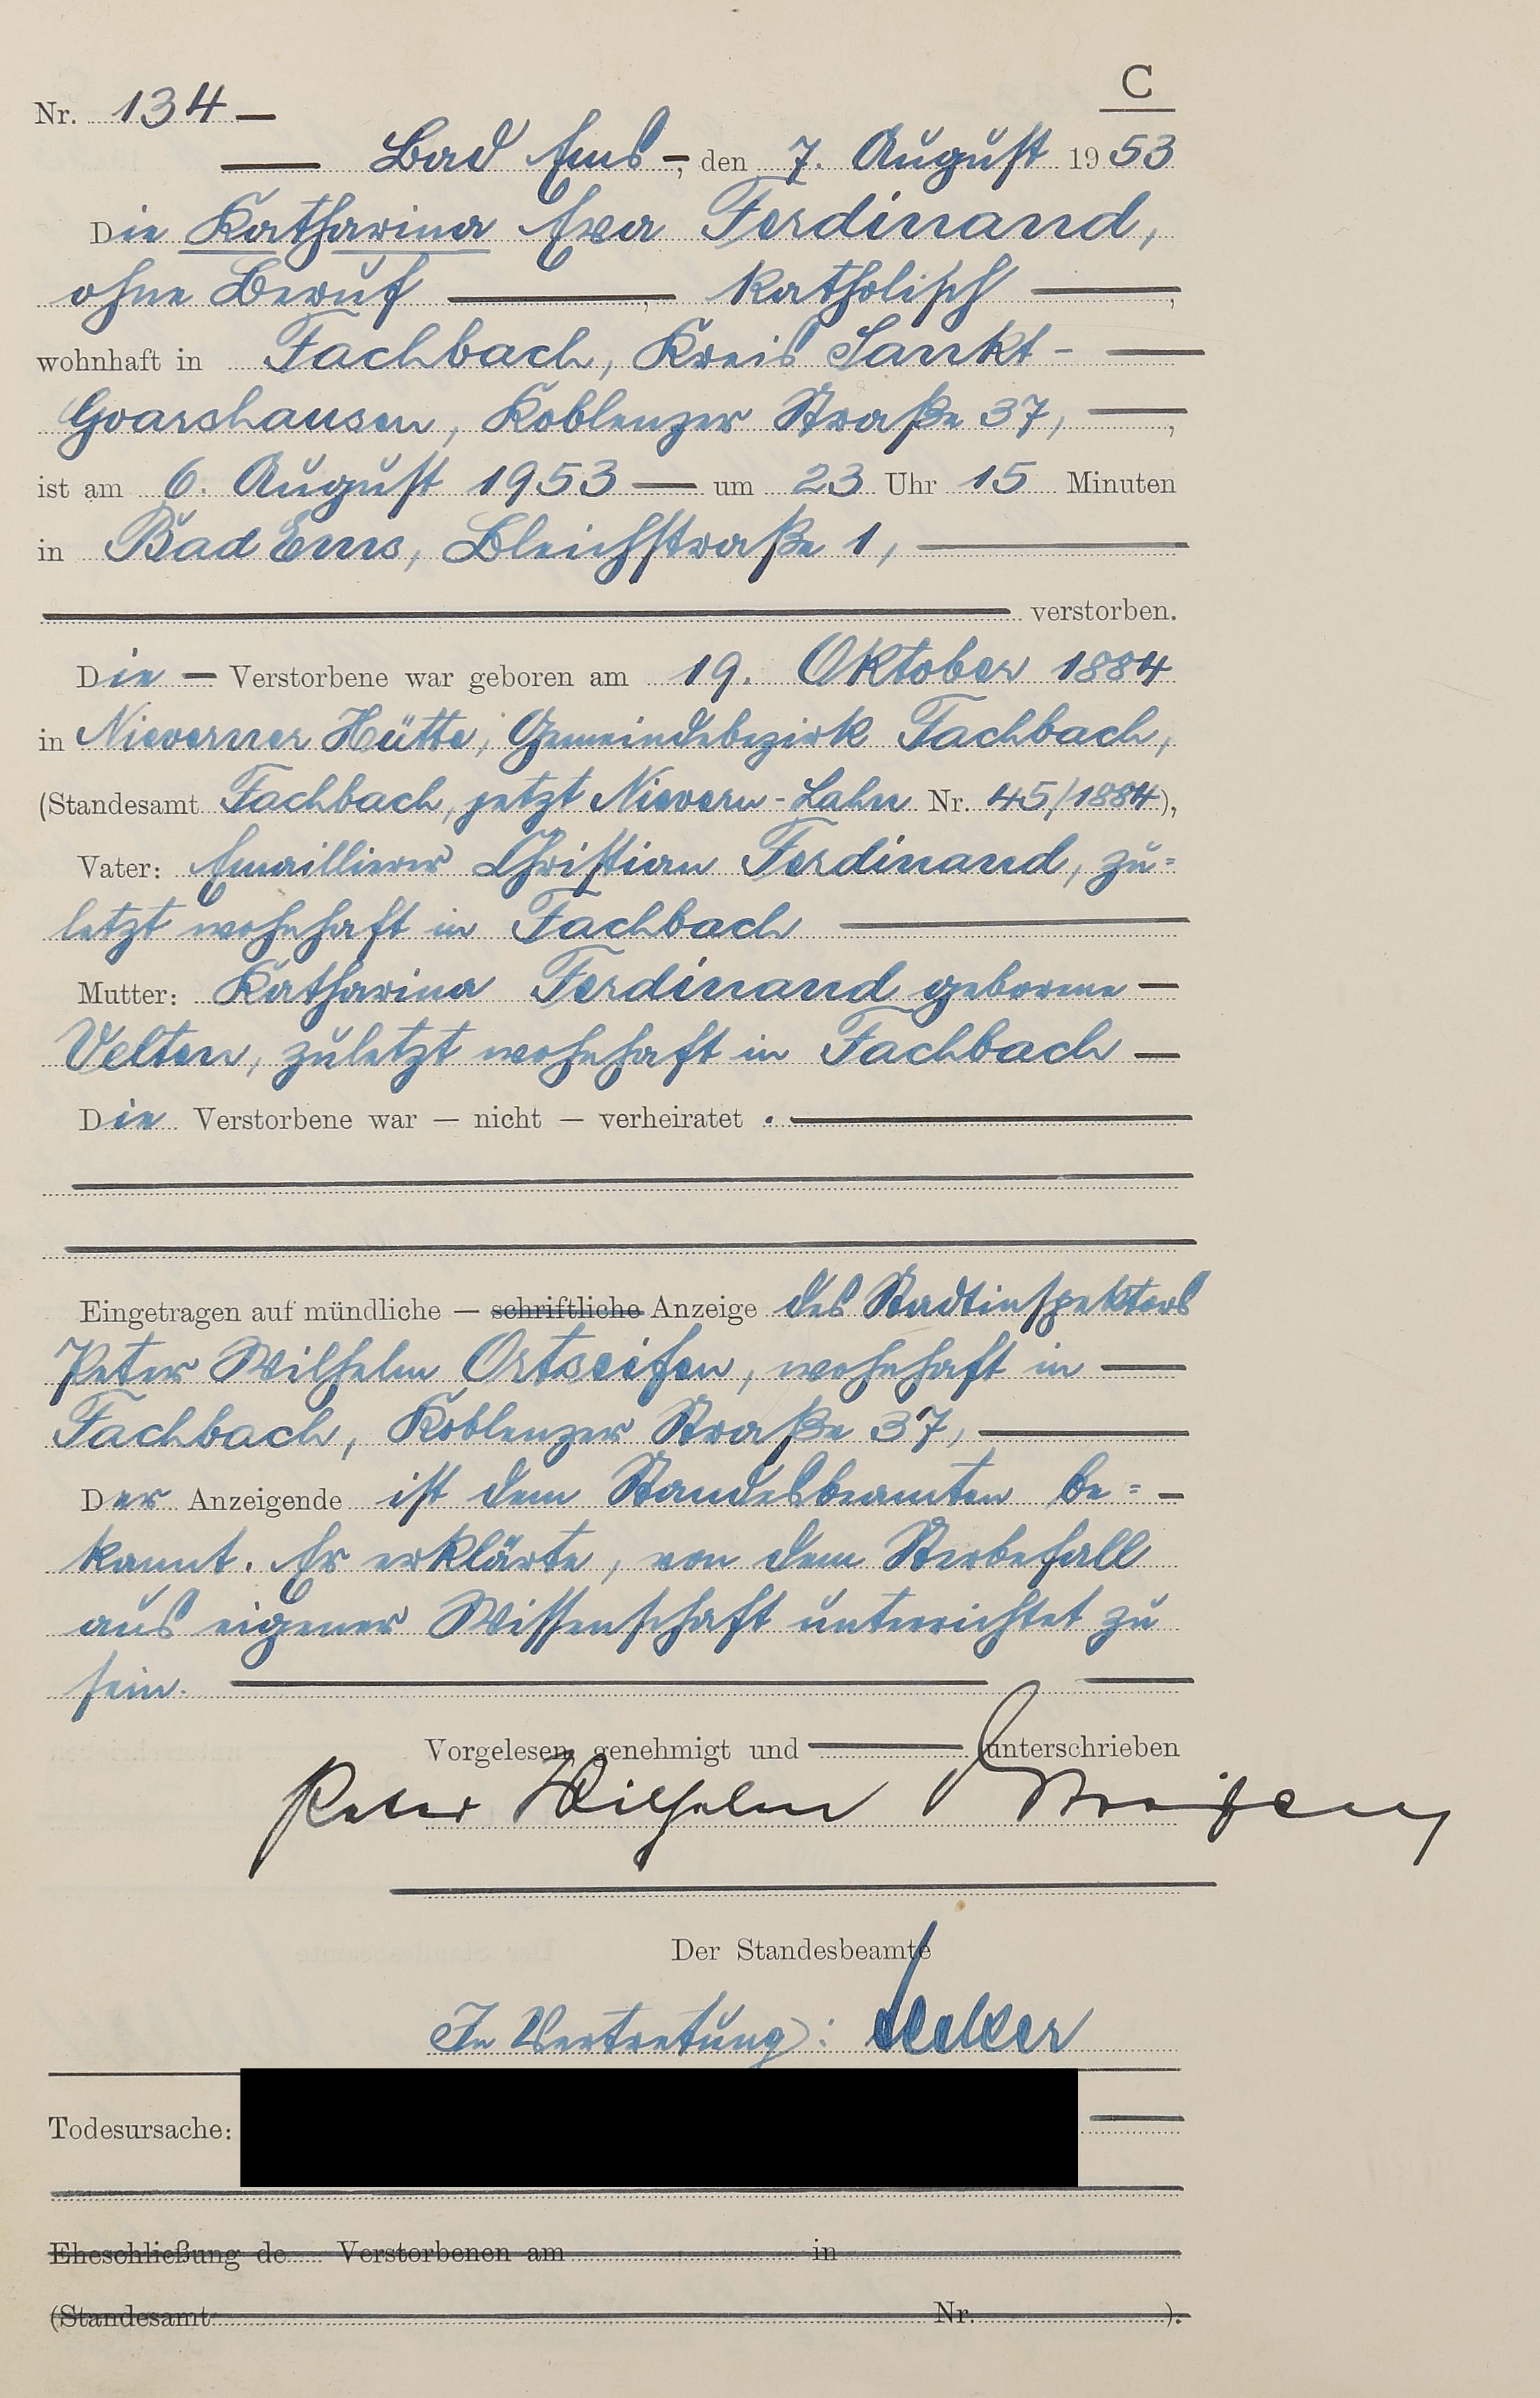 C
Nr. 134
Bad Ems, den 7. August 1953
Die Katharina Eva Ferdinand,
ohne Beruf, katholisch,
wohnhaft in Fachbach, Kreis Sankt-
Goarshausen, Koblenzer Straße 37,,
ist am 6. August 1953 um 23 Uhr 15 Minuten
in Bad Ems, Bleichstraße 1,
verstorben.
Die Verstorbene war geboren am 19. Oktober 1884
in Nieverner Hütte, Gemeindebezirk Fachbach,
(Standesamt Fachbach, jetzt Nievern-Lahn Nr. 45/1884),
Vater: Emaillierer Christian Ferdinand, zu=
letzt wohnhaft in Fachbach
Mutter: Katharina Ferdinand geborene
Velten, zuletzt wohnhaft in Fachbach
Die Verstorbene war — nicht — verheiratet.
Eingetragen auf mündliche — schriftliche Anzeige des Stadtinspektors
Peter Wilhelm Ortseifen, wohnhaft in
Fachbach, Koblenzer Straße 37,
Der Anzeigende ist dem Standesbeamten be=
kannt. Er erklärte, von dem Sterbefall
aus eigener Wissenschaft unterrichtet zu
sein.
Vorgelesen, genehmigt und unterschrieben
Peter Wilhelm Ortseifen
Der Standesbeamte
In Vertretung:
Todesursache:
Eheschließung de Verstorbenen am in
(Standesamt Nr. ).